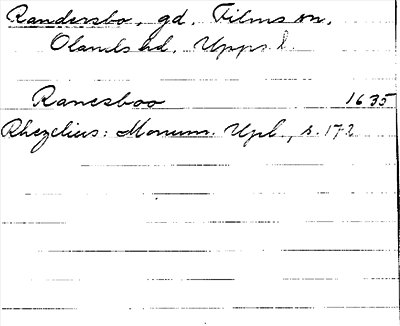 Randersbo, gd, Films sn,
Olands hd, Upps. l.
Ranesboo 1635
Rhezelius: Monum. Upl., s. 172